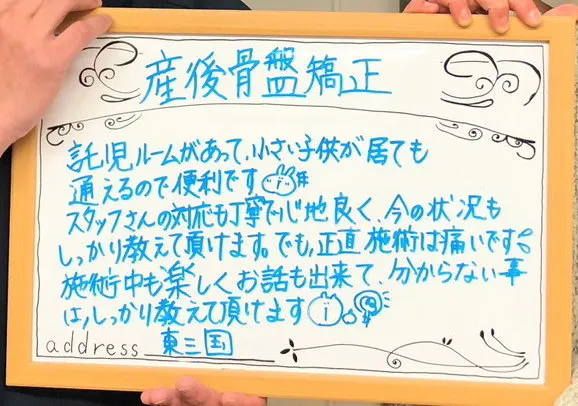 産後骨盤矯正
託児ルームがあって、小さい子供が居ても
通えるので便利です
スタッフさんの対応も丁寧で心地良く、今の状況も
しっかり教えて頂けます。でも、正直施術は痛いです
施術中も楽しくお話も出来て、分からない事
は、しっかり教えて頂けます
address 東三国